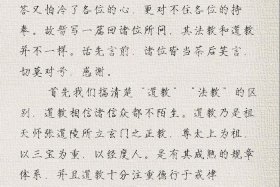 答又怕冷了各位的心，更对不住各位的持
拳。故暂写一篇回诸位所问，其法教和道教
并不一样。话先言前，诸位皆当茶后笑言，
切莫对号，感谢。
首先我们搞清楚“道教”“法教”的区
别，道教相信诸信众都不陌生。道教乃是祖
天师张道陵所立玄门之正教，尊太上为祖，
以三宝为重，以经度人。是有其成熟的规章
体系，并且道教十分注重德行于戒律